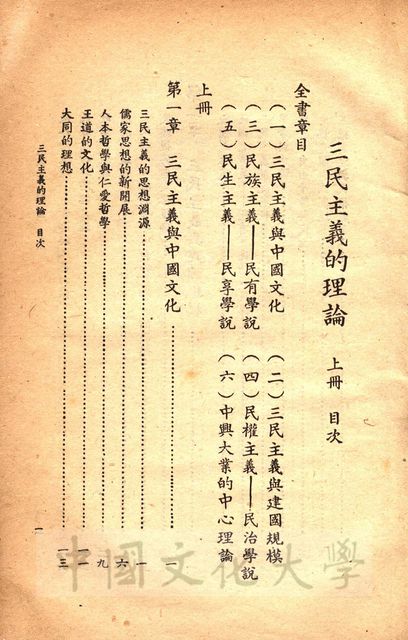 三民主義的理論 上冊 目次
全書章目
(一)三民主義與中國文化 (二)三民主義與建國規模
(三)民族主義——民有學說 (四)民權主義——民治學說
(五)民生主義——民享學說 (六)中興大業的中心理論
上冊
第一章 三民主義與中國文化……一
三民主義的思想淵源……一
儒家思想的新開展……六
人本哲學與仁愛哲學……九
王道的文化……一一
大同的理想……一三
三民主義的理論 目次
一
中國文化大學